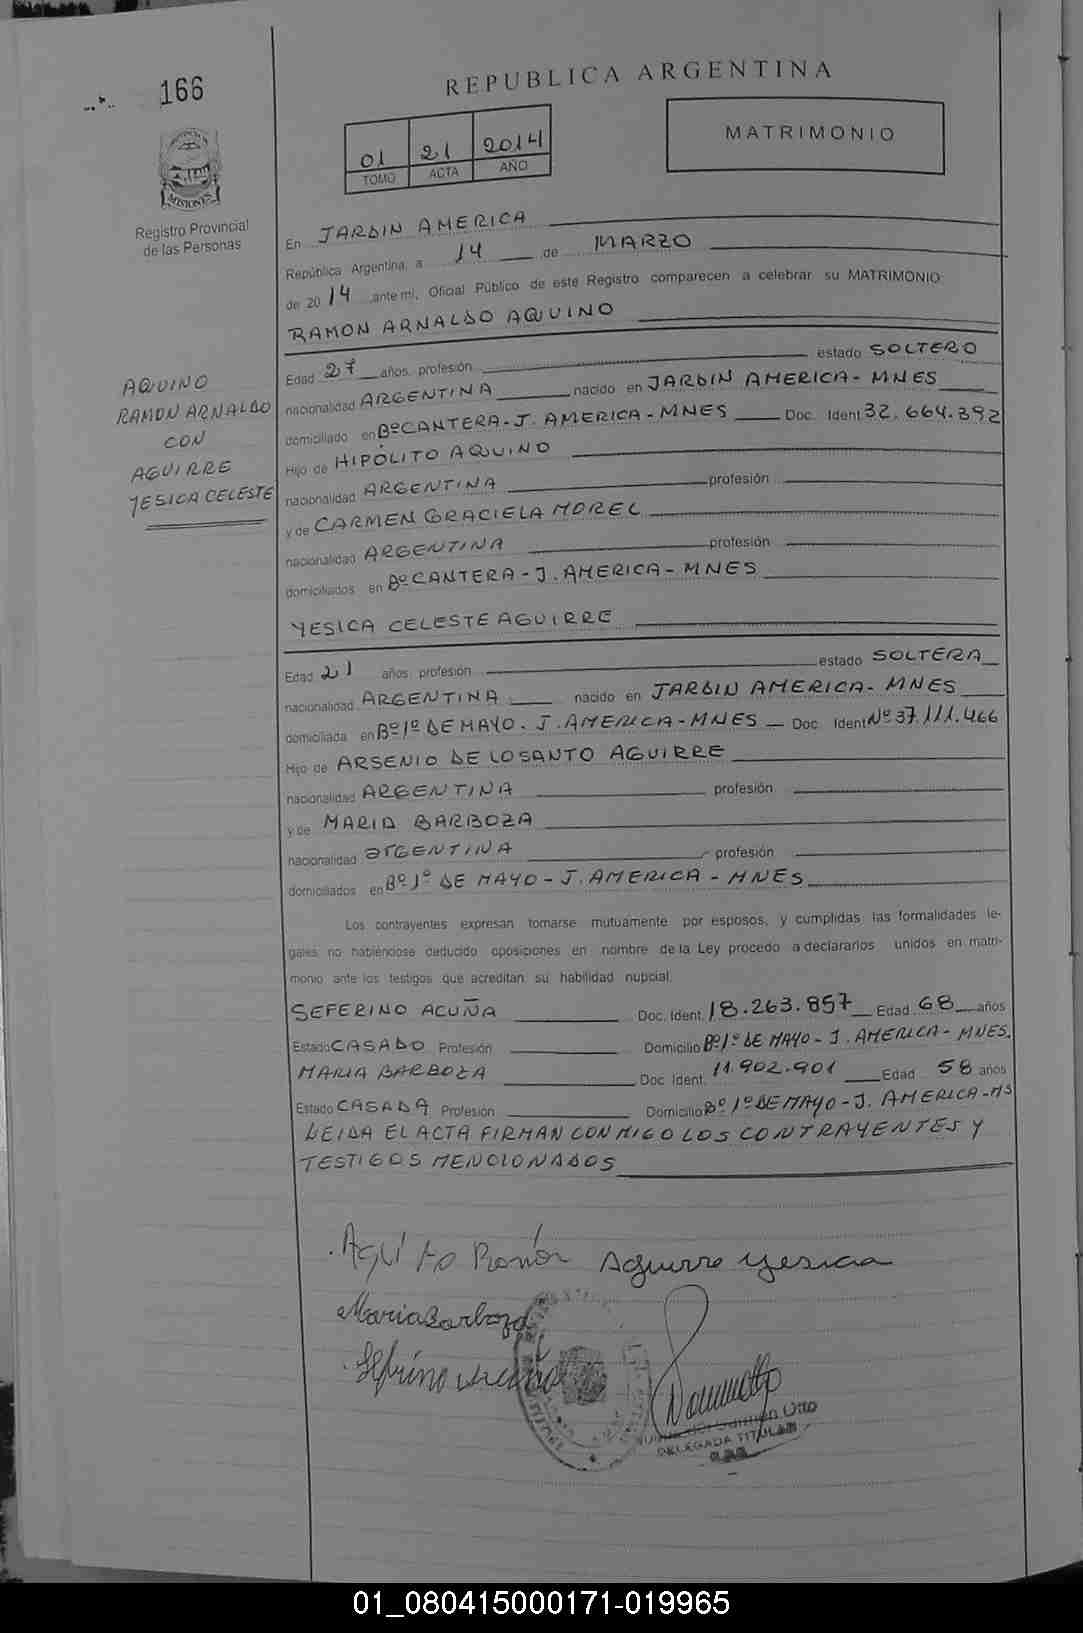 166
REPUBLICA ARGENTINA
01 21 2014
TOMO ACTA AÑO
MATRIMONIO
MISIONES
Registro Provincial
de las Personas
En JARDIN AMERICA
República Argentina, a 14 de MARZO
de 2014 ante mi, Oficial Público de este Registro comparecen a celebrar su MATRIMONIO:
RAMON ARNALDO AQUINO
Edad 27 años, profesión estado SOLTERO
nacionalidad ARGENTINA nacido en JARDIN AMERICA - MNES
domiciliado en Bº CANTERA - J. AMERICA - MNES Doc. Ident 32.664.392
Hijo de HIPÓLITO AQUINO
nacionalidad ARGENTINA profesión
y de CARMEN GRACIELA MOREL
nacionalidad ARGENTINA profesión
domiciliados en Bº CANTERA - J. AMERICA - MNES
AQUINO
RAMON ARNALDO
CON
AGUIRRE
YESICA CELESTE
YESICA CELESTE AGUIRRE
Edad 21 años, profesión estado SOLTERA
nacionalidad ARGENTINA nacido en JARDIN AMERICA - MNES
domiciliada en Bº 1º DE MAYO - J. AMERICA - MNES Doc. Ident Nº 37.111.466
Hijo de ARSENIO DE LOSANTO AGUIRRE
nacionalidad ARGENTINA profesión
y de MARIA BARBOZA
nacionalidad ARGENTINA profesión
domiciliados en Bº 1º DE MAYO - J. AMERICA - MNES
Los contrayentes expresan tomarse mutuamente por esposos, y cumplidas las formalidades le-
gales no habiéndose deducido oposiciones en nombre de la Ley procedo a declararlos unidos en matri-
monio ante los testigos que acreditan su habilidad nupcial.
SEFERINO ACUÑA Doc. Ident. 18.263.857 Edad 68 años
Estado CASADO Profesión Domicilio Bº 1º DE MAYO - J. AMERICA - MNES.
MARIA BARBOZA Doc. Ident. 11.902.901 Edad 58 años
Estado CASADA Profesión Domicilio Bº 1º DE MAYO - J. AMERICA - MS
LEIDA EL ACTA FIRMAN CONMIGO LOS CONTRAYENTES Y
TESTIGOS MENCIONADOS
Ramón Aguirre Yesica
Maria Barboza
del Carmen Otto
DELEGADA TITULAR
01_080415000171-019965